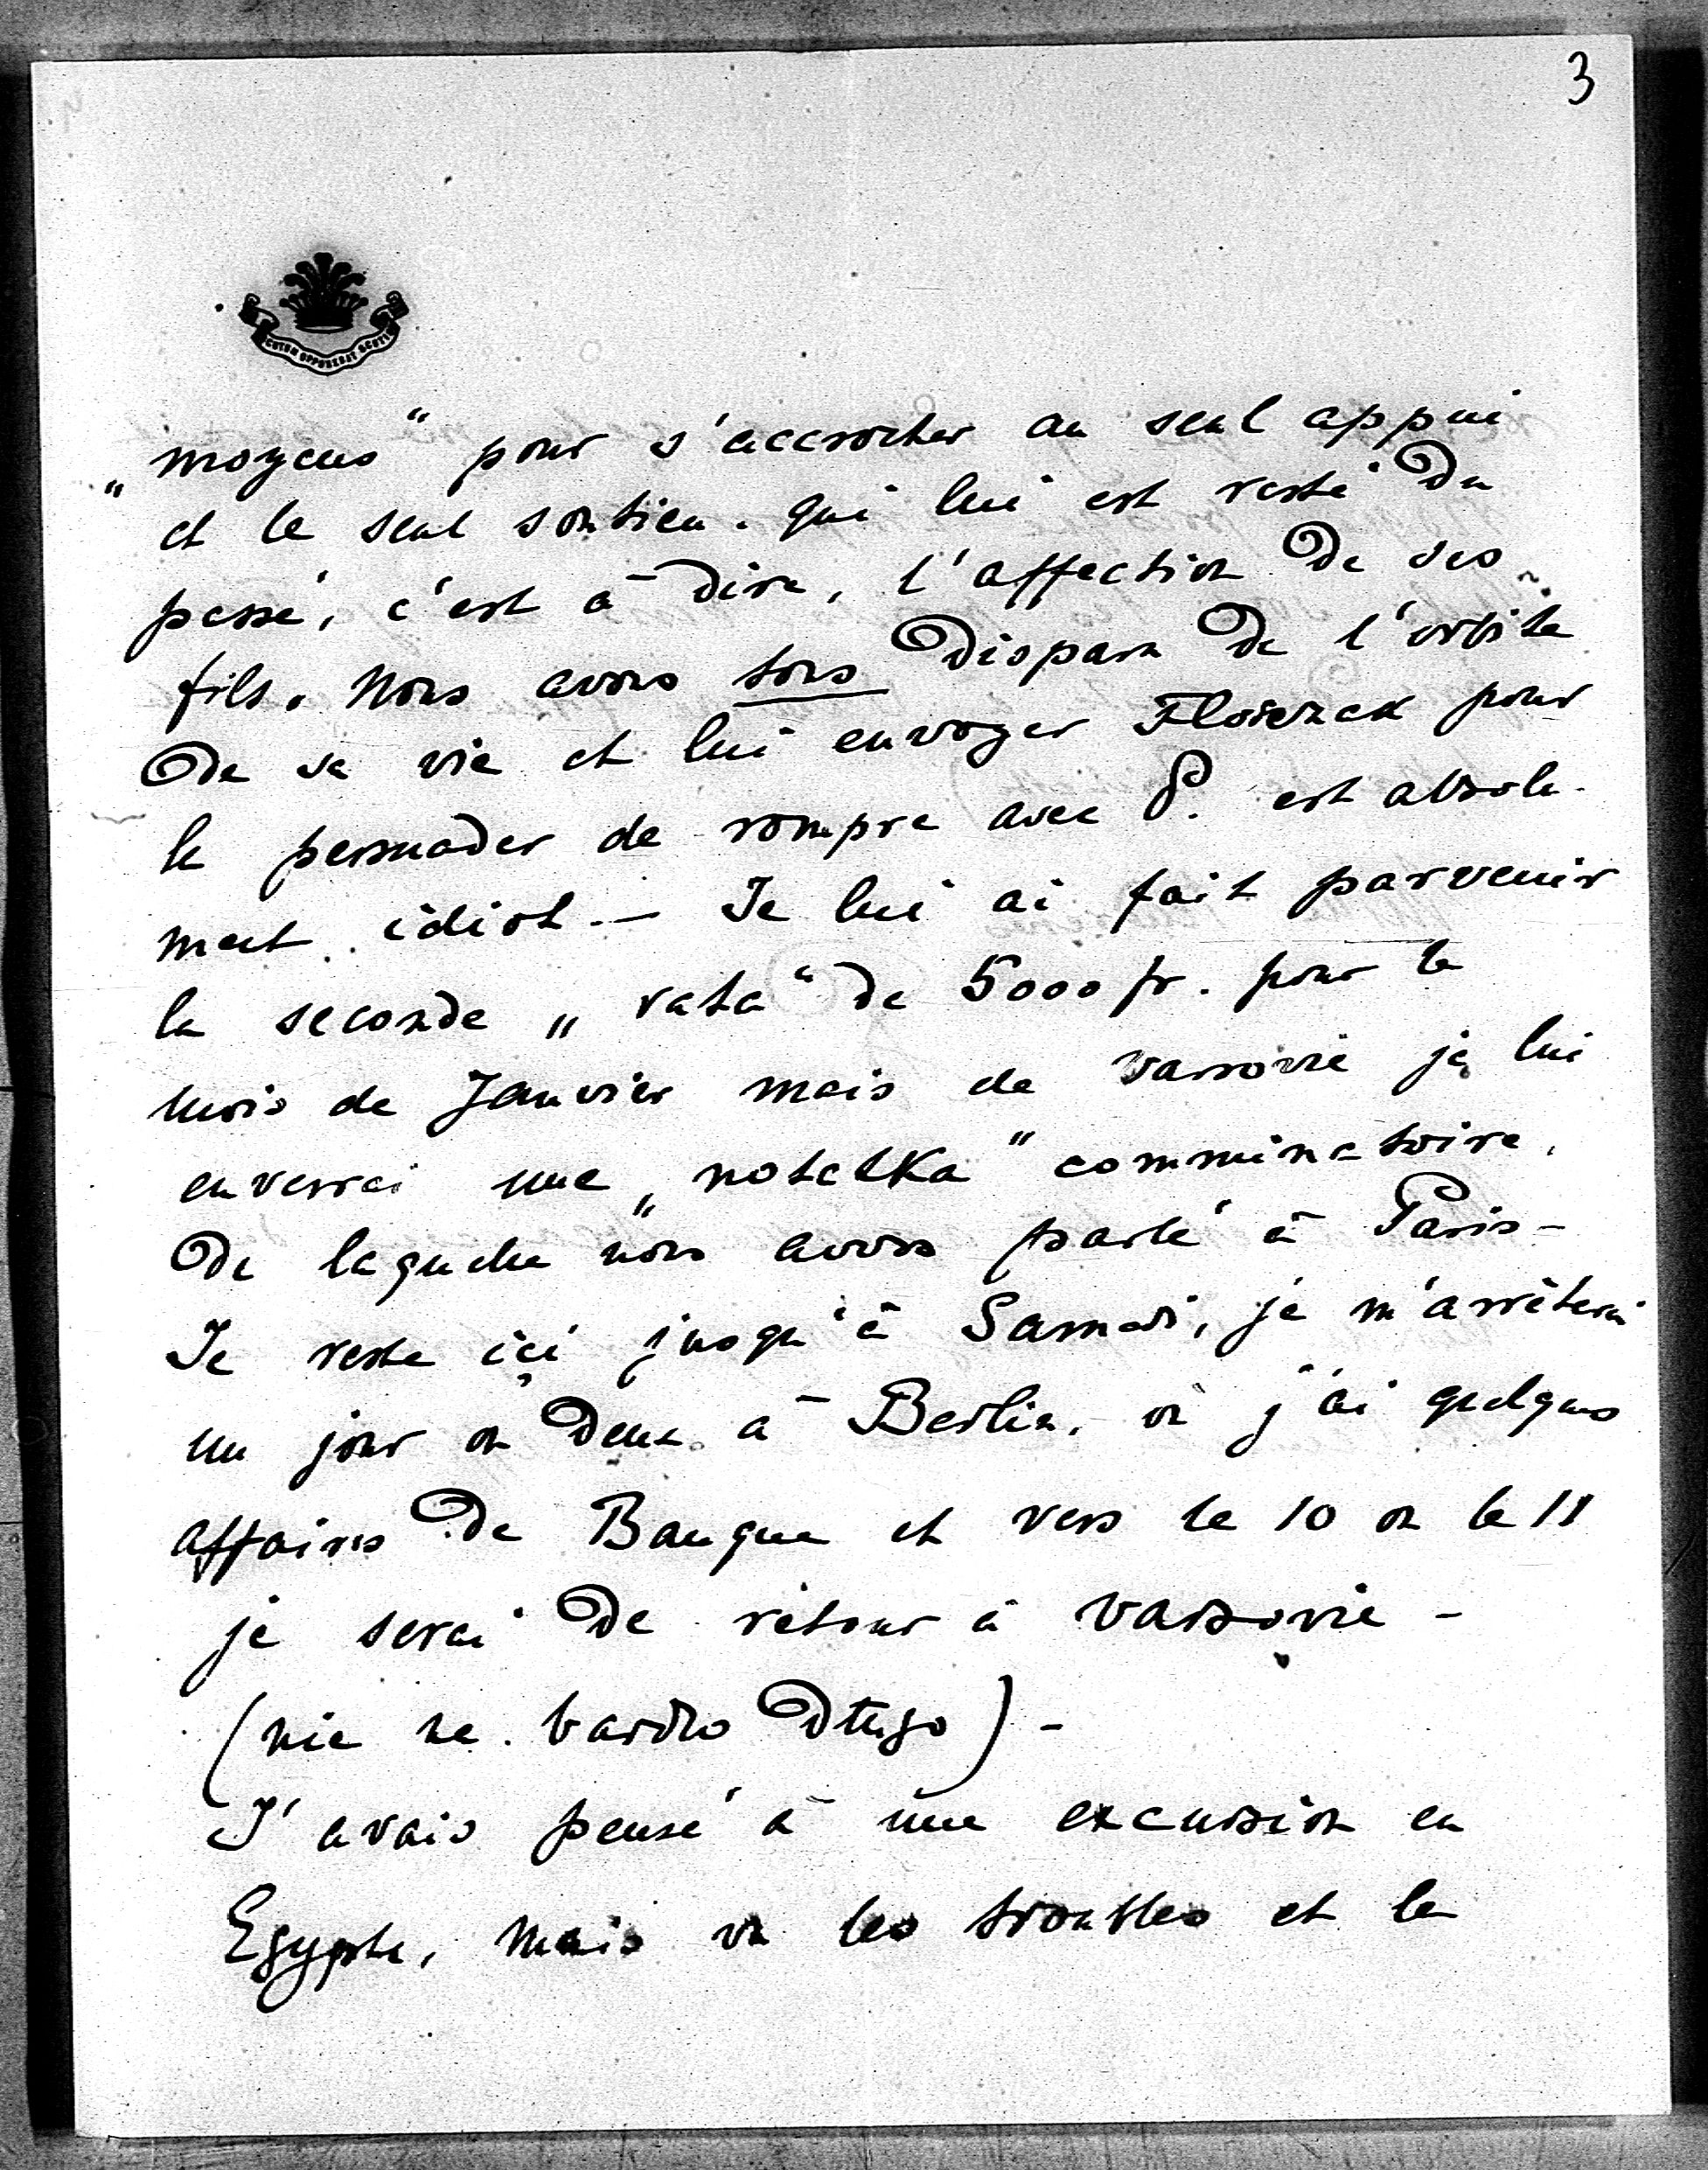 3
SCUTUM OPPONEBAT SCUTIS
„moyens“ pour s'accrocher au seul appui
et le seul soutien. qui lui est resté du
passé, c'est à dire, l'affection de ses
fils. Nous avons tous disparu de l'orbite
de sa vie et lui envoyer Florence pour
le persuader de rompre avec P. est absolu-
ment idiot. — Je lui ai fait parvenir
la seconde „rata“ de 5000 fr. pour le
mois de Janvier mais de Varsovie je lui
enverrai une „notatka“ comminatoire,
de laquelle nous avons parlé à Paris -
Je reste ici jusqu'à Samedi, je m'arrêterai
un jour ou deux à Berlin, où j'ai quelques
affaires de Banque et vers le 10 ou le 11
je serai de retour à Varsovie -
(nie na bardzo długo) -
J'avais pensé à une excursion en
Egypte, mais vu les troubles et le